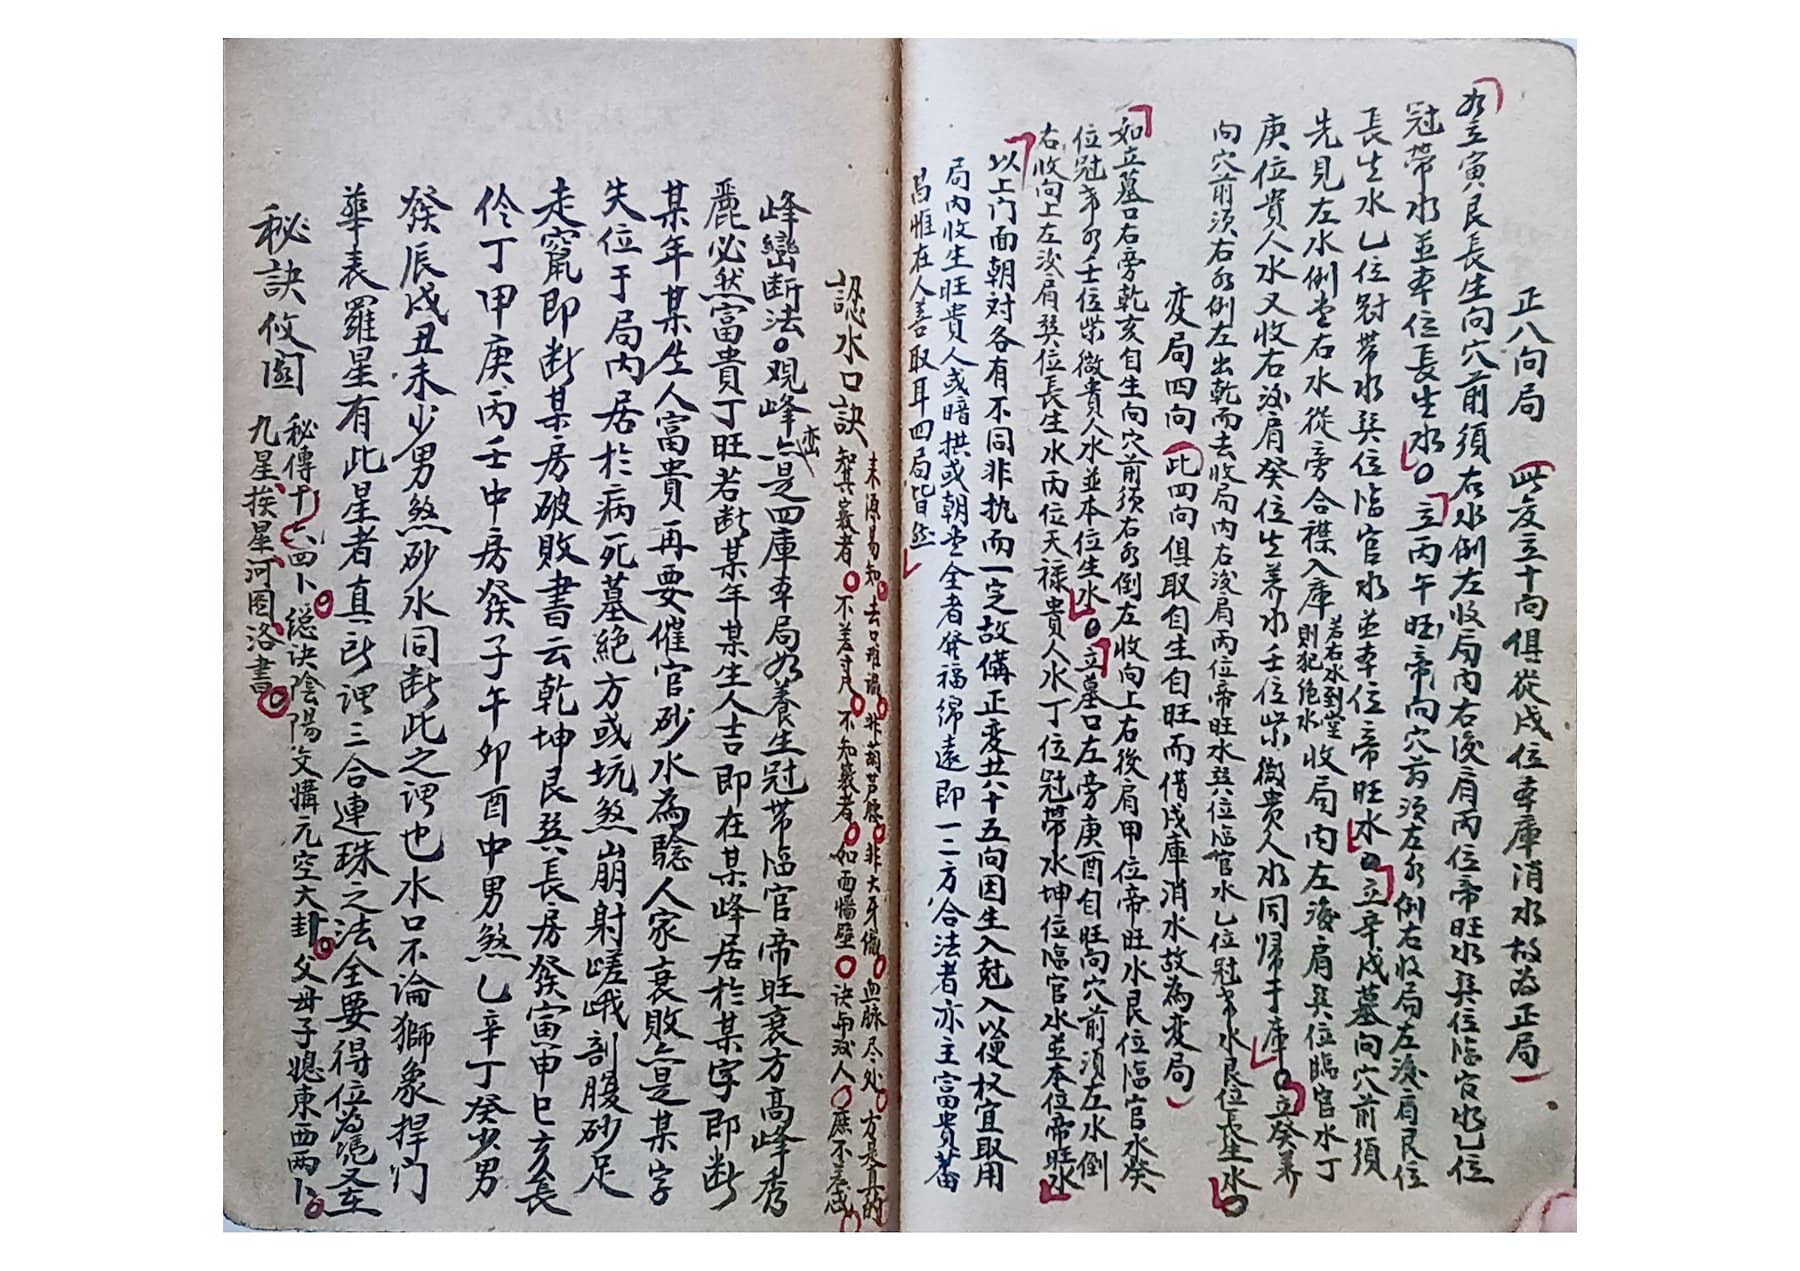 正八向局（此友立十向俱從戌位本庫消水故為正局）
如立寅艮長生向穴前須右水倒左收局內右後肩丙位帝旺水巽位臨官水乙位
冠帶水並本位長生水〇立丙午旺帝向穴前須左水倒右收局左後肩艮位
長生水乙位冠帶水巽位臨官水並本位帝旺水〇立辛戌墓向穴前須
先見左水倒堂右水從旁合襟入庫若右水到堂則犯絕水收局內左後肩巽位臨官水丁
庚位貴人水又收右後肩癸位生養水壬位紫微貴人水同歸于庫〇立癸養
向穴前須右水倒左出乾而去收局內右後肩丙位帝旺水巽位臨官水乙位冠帶水艮位長生水〇
变局四向（此四向俱取自生自旺而借戌庫消水故為変局）
如立墓口右旁乾亥自生向穴前須右水倒左收向上右後肩甲位帝旺水艮位臨官水癸
位冠帶水壬位紫微貴人水並本位生水〇立墓口左旁庚酉自旺向穴前須左水倒
右收向上左後肩巽位長生水丙位天祿貴人水丁位冠帶水坤位臨官水並本位帝旺水
以上门面朝对各有不同非执而一定故備正変共六十五向因生入尅入以便权宜取用
局內收生旺貴人或暗拱或朝堂全者發福綿遠即一二方合法者亦主富貴蕃
昌惟在人善取耳四局皆然
認水口訣
来源易知〇去口难識〇非葫芦腰〇非犬牙儀〇血脉尽处〇方是真的
智其竅者〇不差寸尺〇不知竅者〇如面牆壁〇訣与汝人〇庶不差忒〇
峰巒断法〇观峰巒亦是四庫本局如養生冠帶临官帝旺衰方高峰秀
麗必然富貴丁旺若断某年某生人吉即在某峰居於某字即断
某年某生人富貴再要催官砂水為驗人家衰敗亦是某字
失位于局内居於病死墓絕方或坑煞崩射嵯峨剖腹砂足
走竄即断某房破敗書云乾坤艮巽長房發寅申巳亥長
伶丁甲庚丙壬中房發子午卯酉中男煞乙辛丁癸少男
發辰戌丑未少男煞砂水同断此之谓也水口不論獅象捍门
華表羅星有此星者真所谓三合連珠之法全要得位為憑又在
秘訣攸圖
秘傳十六四卜〇总诀陰陽交媾元空大卦〇父母子媳東西兩卜〇
九星挨星河图洛書〇